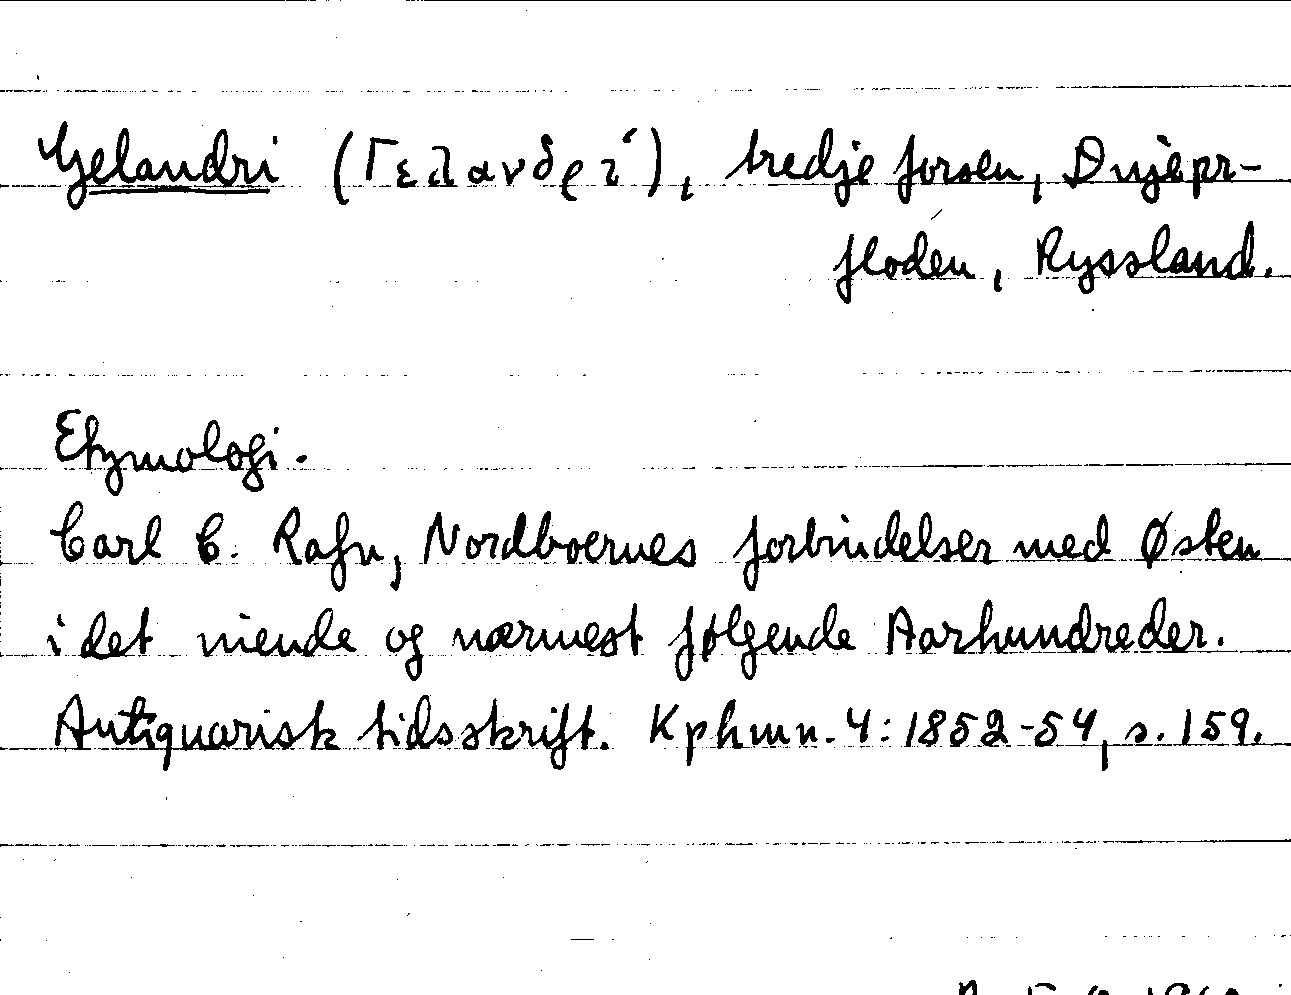 Gelandri (Γελανδρί), tredje forsen, Dnjepr-
floden, Ryssland.
Etymologi.
Carl C. Rafn, Nordboernes forbindelser med Østen
i det niende og nærmest følgende Aarhundreder.
Antiquarisk tidsskrift. Kphmn. 4: 1852-54, s. 159.